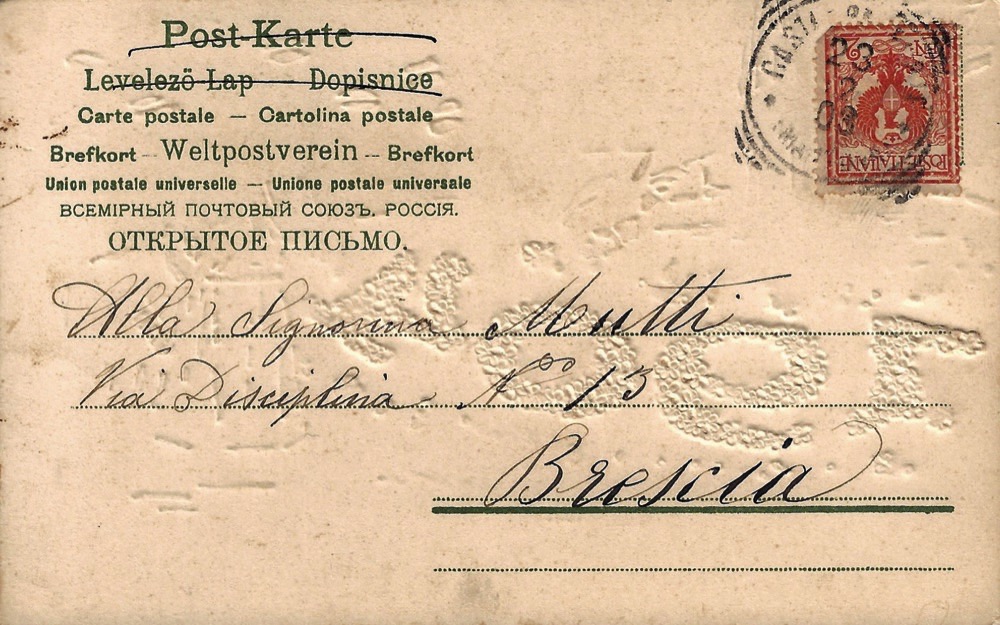 Post-Karte
Levelezö-Lap — Dopisnice
Carte postale — Cartolina postale
Brefkort — Weltpostverein — Brefkort
Union postale universelle — Unione postale universale
ВСЕМІРНЫЙ ПОЧТОВЫЙ СОЮЗЪ. РОССІЯ.
ОТКРЫТОЕ ПИСЬМО.
Alla Signorina Mutti
Via Disciplina No 13
Brescia